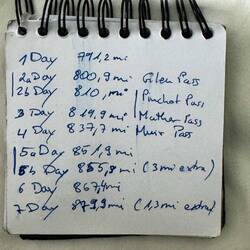 1 Day 791,2 mi
2a Day 800,9 mi Glen Pass
2b Day 810, mi Pinchot Pass
3 Day 819,9 mi Mather Pass
4 Day 837,7 mi Muir Pass
5a Day 851,9 mi
5b Day 855,8 mi (3 mi extra)
6 Day 867,4 mi
7 Day 879,9 mi (1,3 mi extra)